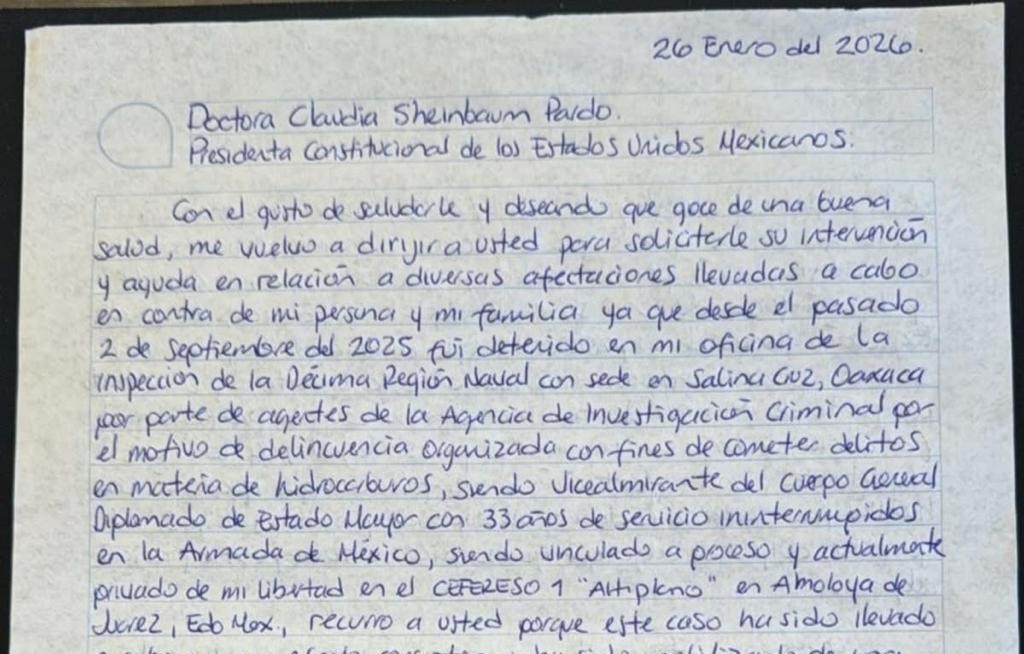 26 Enero del 2026.
Doctora Claudia Sheinbaum Pardo.
Presidenta Constitucional de los Estados Unidos Mexicanos.
Con el gusto de saludarle y deseando que goce de una buena
salud, me vuelvo a dirijir a usted para solicitarle su intervención
y ayuda en relación a diversas afectaciones llevadas a cabo
en contra de mi persona y mi familia ya que desde el pasado
2 de septiembre del 2025 fui detenido en mi oficina de la
inspección de la Décima Región Naval con sede en Salina Cruz, Oaxaca
por parte de agentes de la Agencia de Investigación Criminal por
el motivo de delincuencia organizada con fines de cometer delitos
en materia de hidrocarburos, siendo Vicealmirante del Cuerpo General
Diplomado de Estado Mayor con 33 años de servicio ininterrumpidos
en la Armada de México, siendo vinculado a proceso y actualmente
privado de mi libertad en el CEFERESO 1 "Altiplano" en Almoloya de
Juárez, Edo Mex., recurro a usted porque este caso ha sido llevado